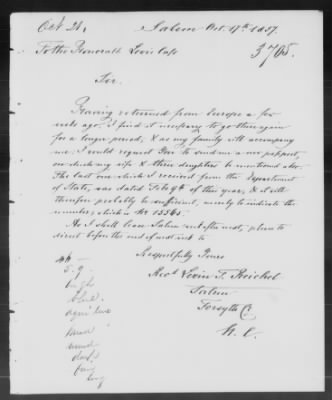 Oct 21.
Salem Oct. 17th 1857.
3765.
To the Honorable Lewis Cass
Sir.
Having returned from Europe a few
weeks ago, I find it necessary to go there again
for a longer period, & as my family will accompany
me, I would request You to send me a new passport,
in which my wife & three daughters be mentioned also.
The last one which I received from the Department
of State, was dated Feb. 9th of this year, & it will
therefore probably be sufficient, merely to indicate the
number, which is No 15565.
As I shall leave Salem next week, please to
direct before the end of next week to
Respectfully Yours
Revd Levin T. Reichel
Salem
Forsyth Co.
N. C.
45 —
5. 9.
high
blue
aquiline
round
dark